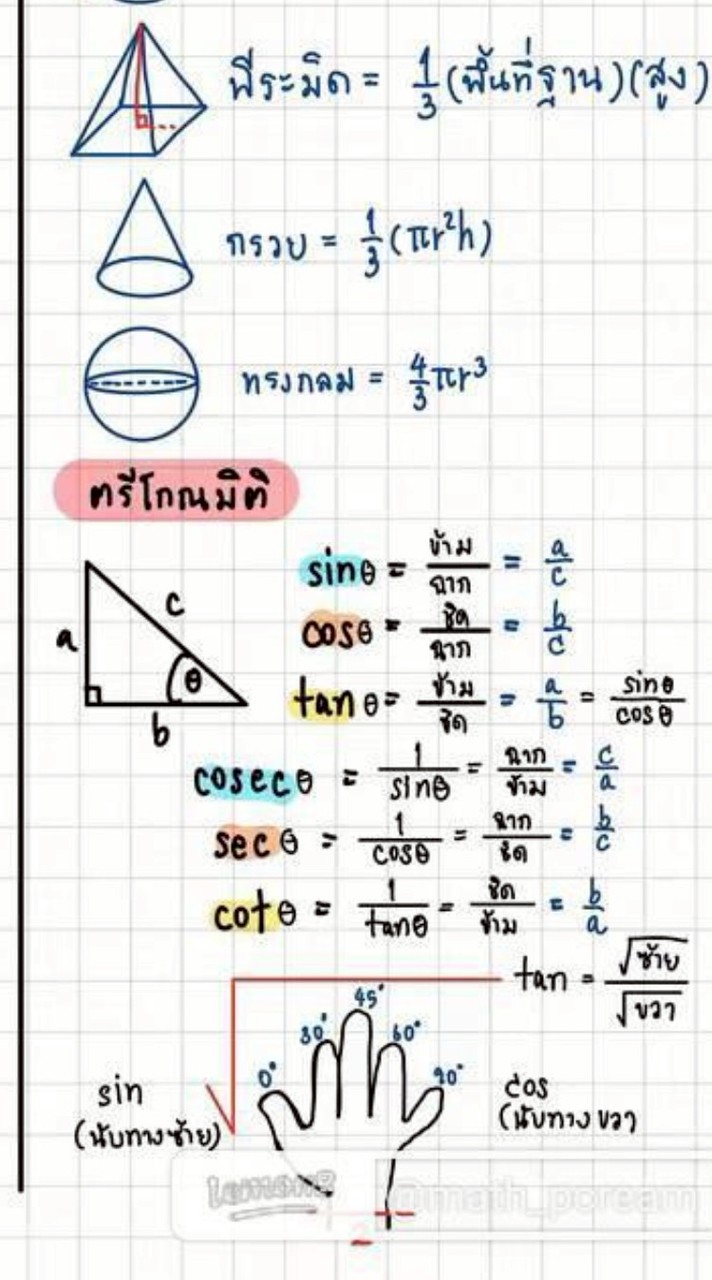 พีระมิด = 1/3 (พื้นที่ฐาน)(สูง)
กรวย = 1/3 (πr²h)
ทรงกลม = 4/3 πr³
ตรีโกณมิติ
a
c
θ
b
sinθ = ข้าม/ฉาก = a/c
cosθ = ชิด/ฉาก = b/c
tanθ = ข้าม/ชิด = a/b = sinθ/cosθ
cosecθ = 1/sinθ = ฉาก/ข้าม = c/a
secθ = 1/cosθ = ฉาก/ชิด = b/c
cotθ = 1/tanθ = ชิด/ข้าม = b/a
tan = √ซ้าย/√ขวา
0° 30° 45° 60° 90°
sin
(นับทางซ้าย)
cos
(นับทางขวา
2
@math_poream